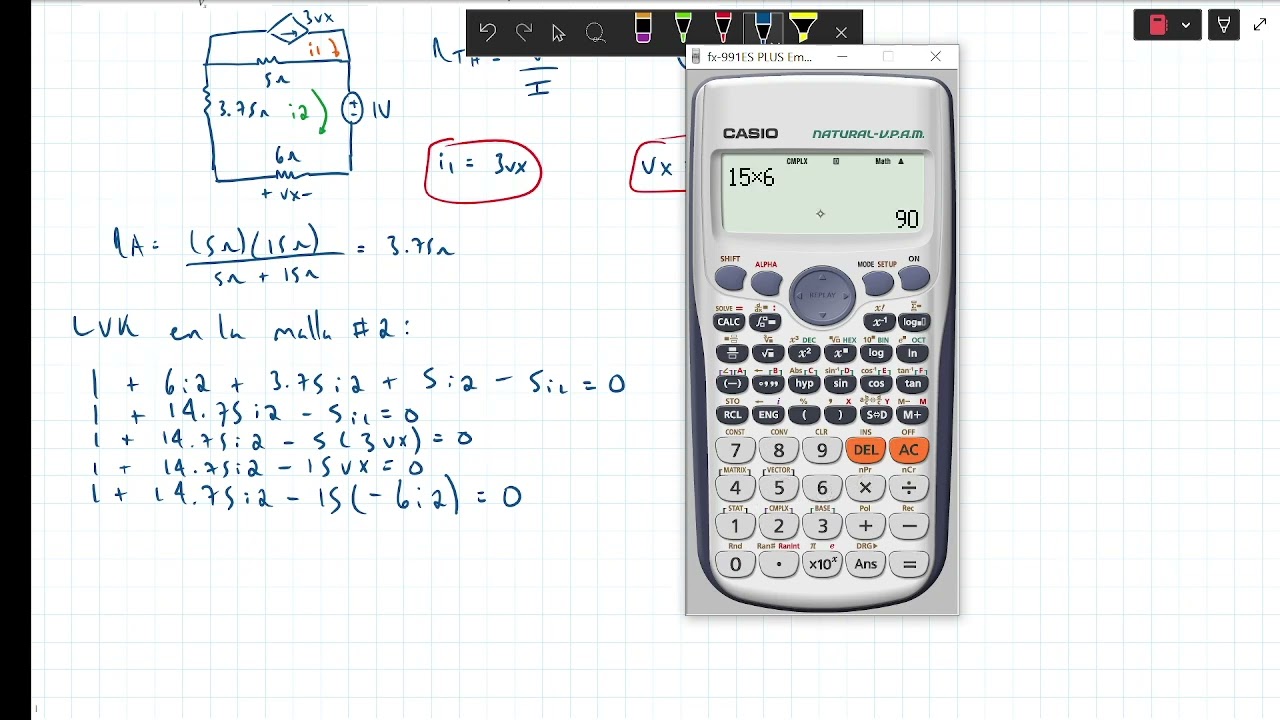 3vx
i1
5Ω
3.75Ω i2 1V
6Ω
+ vx -
RTH = V
I
i1 = 3vx
Vx =
RA = (5Ω)(15Ω) = 3.75Ω
5Ω + 15Ω
LVK en la malla #2:
1 + 6i2 + 3.75i2 + 5i2 - 5i1 = 0
1 + 14.75i2 - 5i1 = 0
1 + 14.75i2 - 5(3vx) = 0
1 + 14.75i2 - 15vx = 0
1 + 14.75i2 - 15(-6i2) = 0
fx-991ES PLUS Em...
CASIO NATURAL-V.P.A.M.
CMPLX D Math ▲
15×6
90
SHIFT ALPHA MODE SETUP ON
REPLAY
SOLVE = d/dx : x! Σ
CALC ∫ x⁻¹ log
x³ DEC HEX 10ˣ BIN eˣ OCT
√ x² xⁿ log ln
∠ A ← B Abs C sin⁻¹ D cos⁻¹ E tan⁻¹ F
(−) °,,, hyp sin cos tan
STO ← i % , X Y M− M
RCL ENG ( ) S⇔D M+
CONST CONV CLR INS OFF
7 8 9 DEL AC
MATRIX VECTOR nPr nCr
4 5 6 × ÷
STAT CMPLX BASE Pol Rec
1 2 3 + −
Rnd Ran# RanInt π e DRG▶
0 . ×10ˣ Ans =